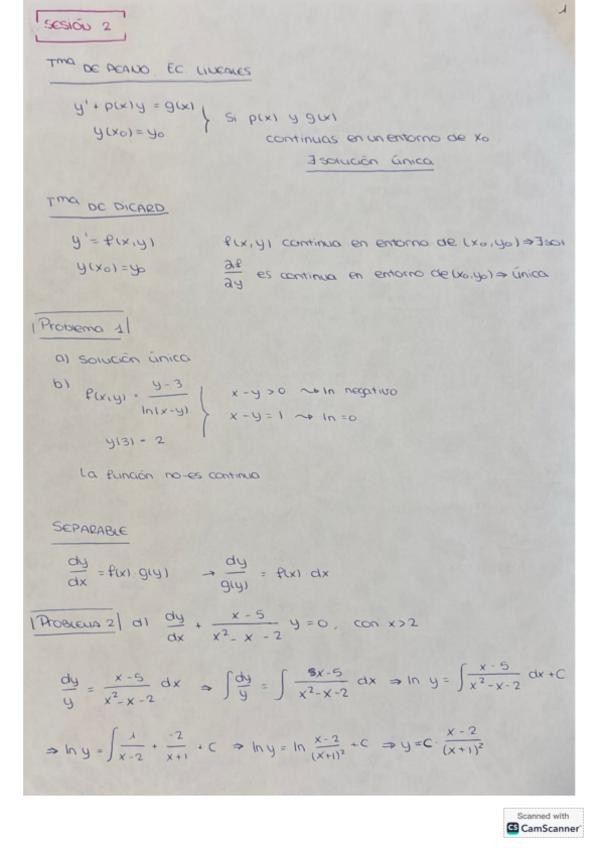 1
SESIÓN 2
Tma DE PEANO EC. LINEALES
y' + p(x)y = g(x)
y(x0) = y0
Si p(x) y g(x)
continuas en un entorno de x0
∃ solución única
Tma DE PICARD
y' = f(x,y)
f(x,y) continua en entorno de (x0,y0) ⇒ ∃sol
y(x0) = y0
∂f/∂y es continua en entorno de (x0,y0) ⇒ única
Problema 1
a) solución única
b) f(x,y) = y-3 / ln(x-y)
x-y>0 ⇝ ln negativo
x-y=1 ⇝ ln=0
y(3) = 2
La función no es continua
SEPARABLE
dy/dx = f(x)·g(y) → dy/g(y) = f(x) dx
PROBLEMA 2 d) dy/dx + x-5/x²-x-2 y=0, con x>2
dy/y = x-5/x²-x-2 dx ⇒ ∫dy/y = ∫ x-5/x²-x-2 dx ⇒ ln y = ∫ x-5/x²-x-2 dx + C
⇒ ln y = ∫ 1/x-2 + -2/x+1 + C ⇒ ln y = ln x-2/(x+1)² + C ⇒ y = C· x-2/(x+1)²
Scanned with
CS CamScanner